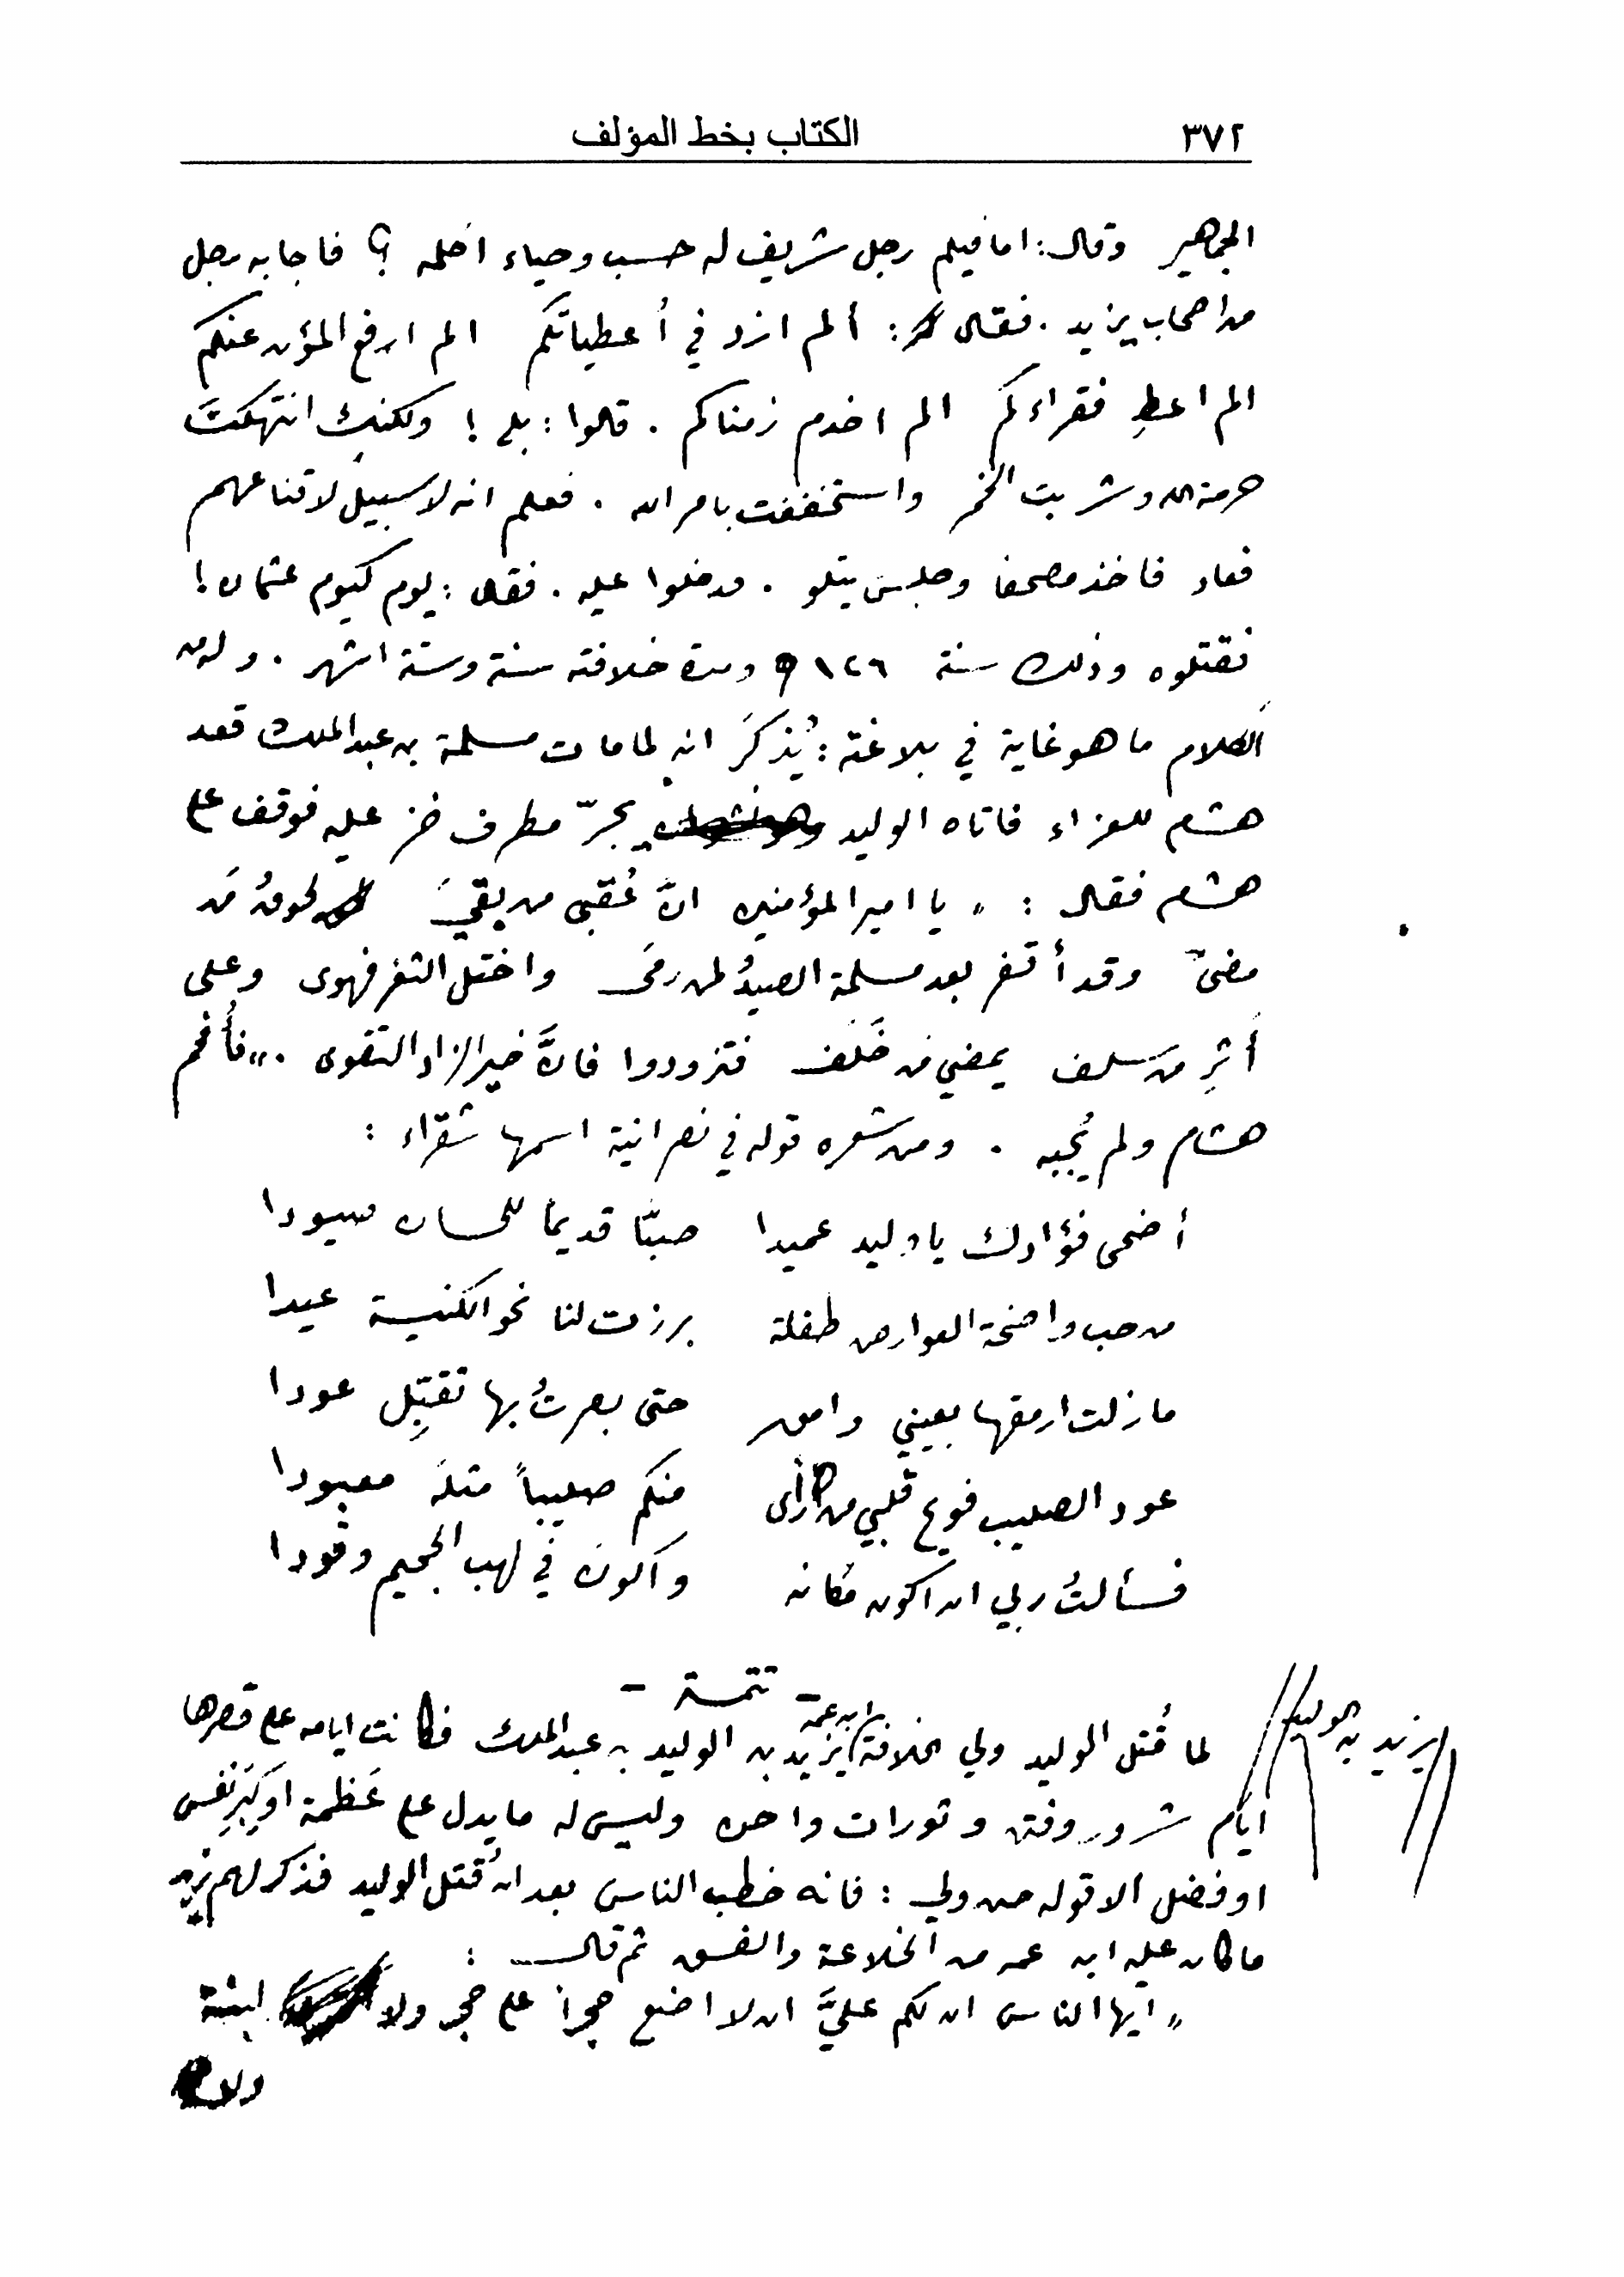 ٣٧٢
الكتاب بخط المؤلف
الجماهير وقال: اما فيكم رجل شريف له حسب وحياء اكلمه ؟ فاجابه رجل
من اصحاب يزيد . فقال : ألم ازد في أعطياتكم الم ارفع المؤن عنكم
الم اعطِ فقراءكم الم اخدم زمناكم . قالوا : بلى ! ولكنك انتهكتَ
حرمة الله وشربت الخمر واستخففت بامر الله . فعلم انه لا سبيل لاقناعهم
فعاد فاخذ مصحفا وجلس يتلو . فدخلوا عليه . فقال : يوم كيوم عثمان !
فقتلوه وذلك سنة ١٢٦ ومدة خلافته سنة وستة اشهر . وله من
الكلام ما هو غاية في بلاغة : يُذكَر انه لما مات مسلمة بن عبد الملك قعد
هشام للعزاء فاتاه الوليد يجرّ مطرف خز عليه فوقف على
هشام فقال : „ يا امير المؤمنين انّ عُقبى من بقيَ لحوقُ مَن
مضى وقد أقفر بعد مسلمة الصيدُ لمن رمى واختل الثغر فهوى وعلى
أثرِ من سلف يمضي من خَلَف فتزودوا فانَّ خير الزاد التقوى . „ فأُفحم
هشام ولم يُجبه . ومن شعره قوله في نصرانية اسمها شقراء :
أضحى فؤادك يا وليد عميدا صبّا قديما للحسان صيودا
من حب واضحة العوارض طفلة برزت لنا نحو الكنيسة عيدا
ما زلت ارمقها بعيني وامق حتى بصرتُ بها تقبّل عودا
عود الصليب فويح قلبي من رأى منكم صليباً مثله معبودا
فسألتُ ربي ان اكون مكانه واكونَ في لهب الجحيم وقودا
- تتمة -
يزيد بن الوليد
لما قُتل الوليد ولي الخلافة ابن عمه يزيد بن الوليد بن عبد الملك فكانت ايامه على قصرها
ايام شرور وفتن وثورات واحن وليس له ما يدل على عَظمة او كِبَرِ نفس
او فضل الا قوله حين ولي : فانه خطب الناس بعد ان قُتل الوليد فذكر لهم
ما كان عليه ابن عمه من الخلاعة والفسق ثم قال :
„ ايها الناس ان لكم عليَّ ان لا اضع حجراً على حجر ولا لبنة
ولا